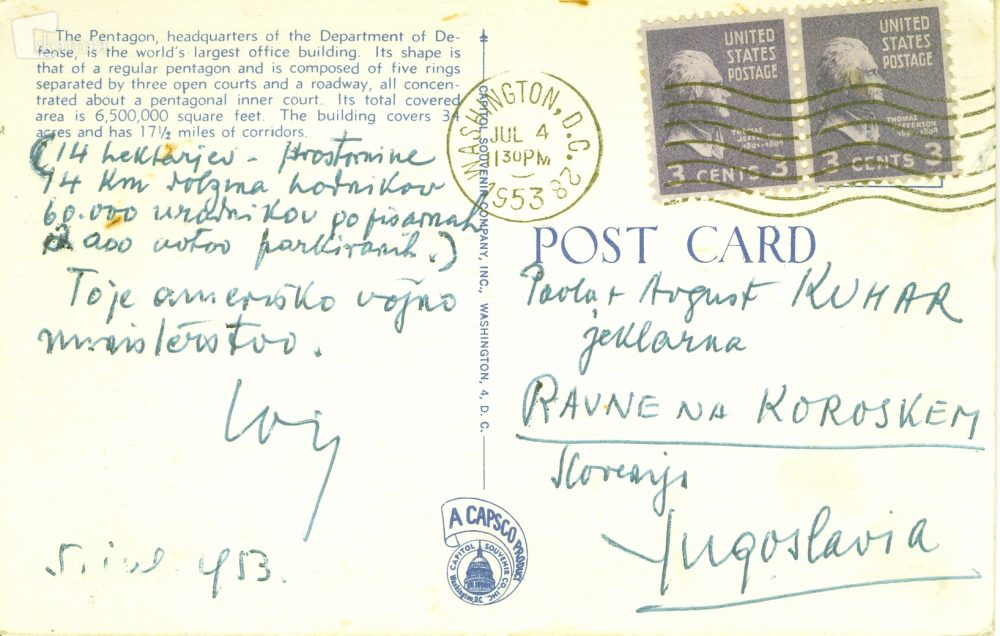 The Pentagon, headquarters of the Department of De-
fense, is the world's largest office building. Its shape is
that of a regular pentagon and is composed of five rings
separated by three open courts and a roadway, all concen-
trated about a pentagonal inner court. Its total covered
area is 6,500,000 square feet. The building covers 34
acres and has 17½ miles of corridors.
(14 hektarjev - prostornine
14 km dolžina hodnikov
60.000 uradnikov po pisarnah
avtov parkiranih.)
To je ameriško vojno
ministerstvo.
5. jul. 1953.
CAPITOL SOUVENIR COMPANY, INC., WASHINGTON, 4, D. C.
A CAPSCO PRODUCT
CAPITOL SOUVENIR CO. INC.
Washington, D.C.
WASHINGTON, D.C. 28
JUL 4
130 PM
1953
UNITED
STATES
POSTAGE
THOMAS
JEFFERSON
1801-1809
3 CENTS 3
UNITED
STATES
POSTAGE
THOMAS
JEFFERSON
1801-1809
3 CENTS 3
POST CARD
Pavla + Avgust KUHAR
jeklarna
RAVNE NA KOROŠKEM
Slovenija
Yugoslavia